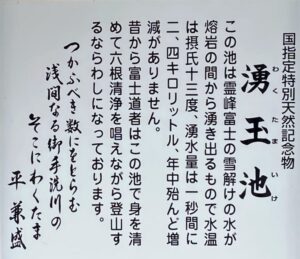 国指定特別天然記念物
わくたまいけ
湧玉池
この池は霊峰富士の雪解けの水が
熔岩の間から湧き出るもので水温
は摂氏十三度、湧水量は一秒間に
二、四キロリットル、年中殆んど増
減がありません。
昔から富士道者はこの池で身を清
めて六根清浄を唱えながら登山す
るならわしになっております。
つかふべき数にをとらむ
浅間なる御手洗川の
そこにわくたま
平兼盛